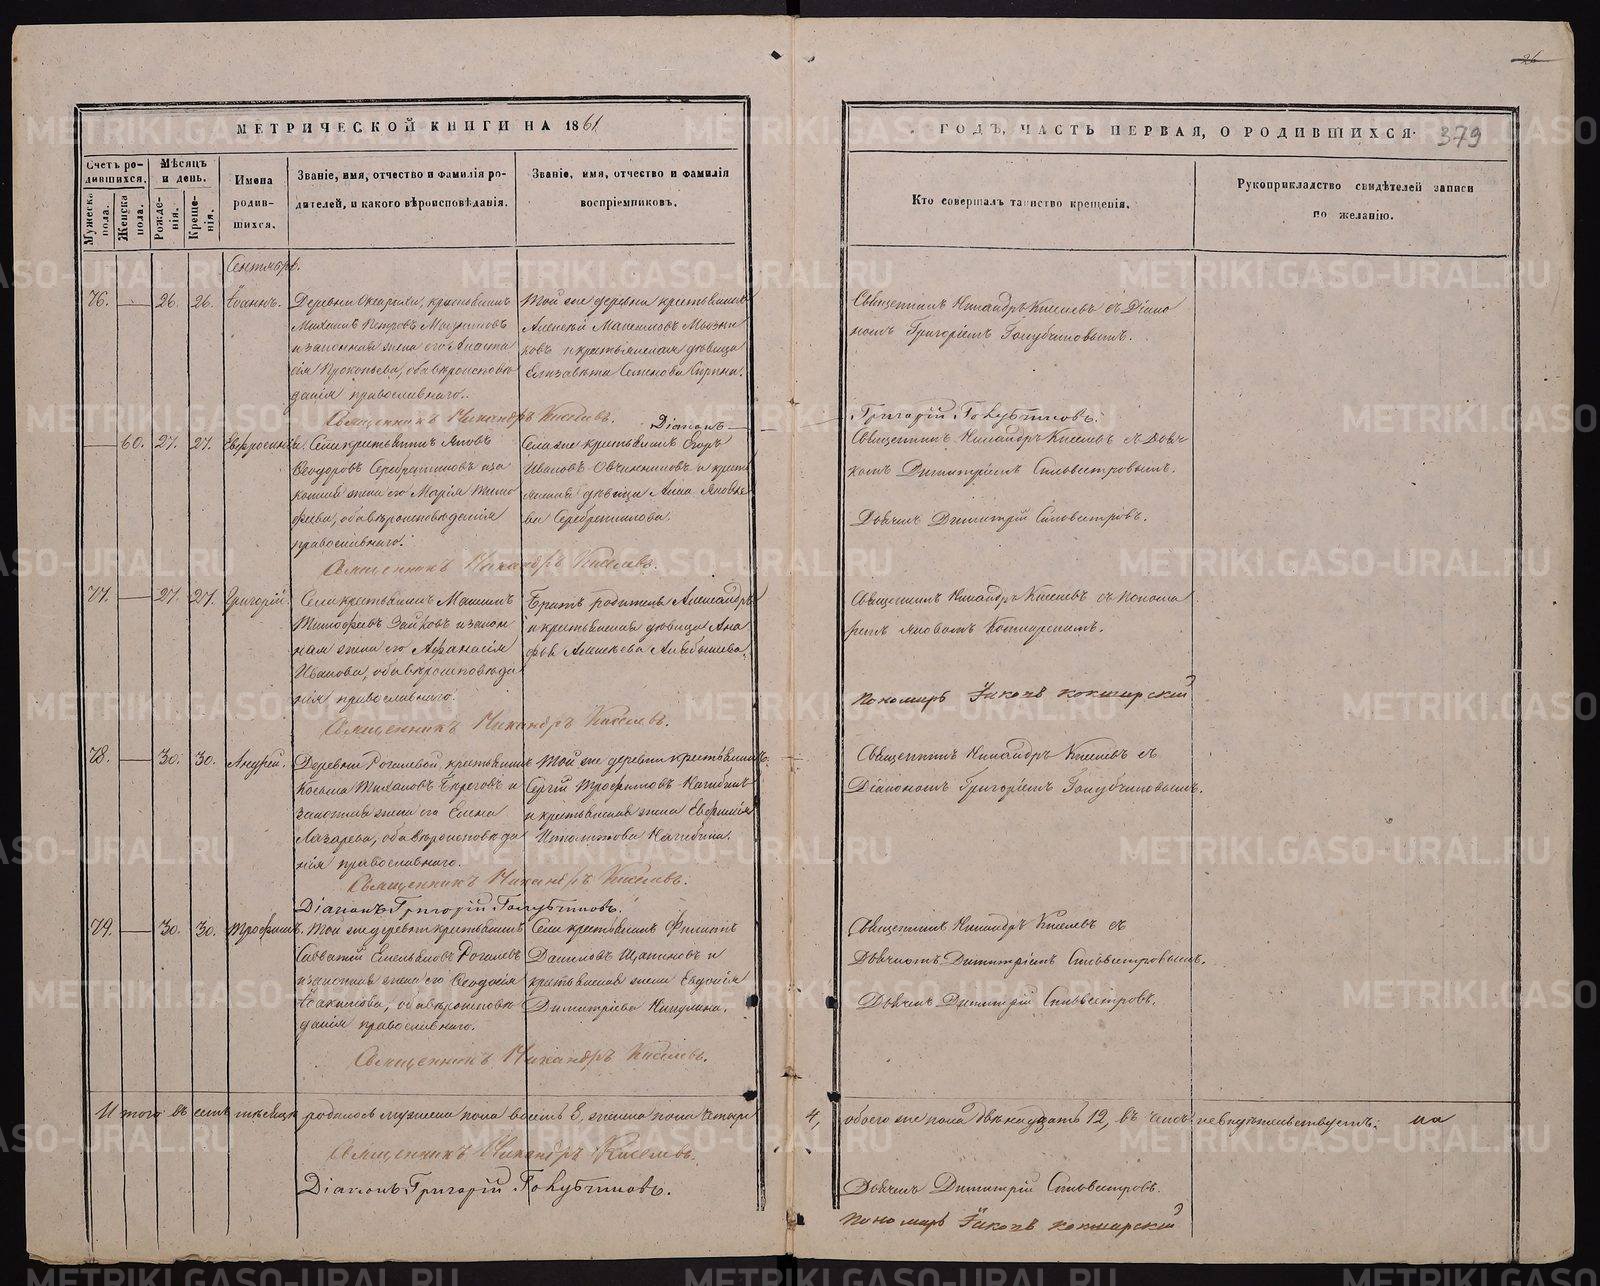 МЕТРИЧЕСКОЙ КНИГИ НА 1861
Счетъ родившихся.
Мужеска пола.
Женска пола.
Мѣсяцъ и день.
Рожденія.
Крещенія.
Имена родившихся.
Званіе, имя, отчество и фамилія родителей, и какого вѣроисповѣданія.
Званіе, имя, отчество и фамилія воспріемниковъ.
Сентябрь.
76. — 26. 26. Іоаннъ.
крестьянинъ
Михаилъ Петровъ
и законная жена его Анаста
сія Прокопьева, оба вѣроисповѣ
данія православнаго.
Той же деревни крестьянинъ
Алексѣй
ковъ и крестьянская дѣвица
Елизавета Семенова
Священникъ Никандръ Киселевъ.
Діаконъ
— 60. 27. 27. Евфросинія.
Села крестьянинъ Яковъ
Ѳеодоровъ Серебренниковъ и за
конная жена его Марія Тимо
феева, оба вѣроисповѣданія
православнаго.
Села же крестьянинъ Егоръ
Ивановъ Овчинниковъ и кресть
янская дѣвица Анна Яковле
ва Серебренникова.
Священникъ Никандръ Киселевъ.
77. — 27. 27. Григорій.
Села крестьянинъ Максимъ
Тимофеевъ Зайковъ и закон
ная жена его Афанасія
Иванова, оба вѣроисповѣда
нія православнаго.
Братъ родителя Александръ
и крестьянская дѣвица Ага
фья Алексѣева
Священникъ Никандръ Киселевъ.
78. — 30. 30. Андрей.
Деревни Рогалевой, крестьянинъ
Косьма
законная жена его Елена
Лазарева, оба вѣроисповѣда
нія православнаго.
Той же деревни крестьянинъ
Сергій Трофимовъ Нагибинъ
и крестьянская жена Евфимія
Ипполитова Нагибина.
Священникъ Никандръ Киселевъ.
Діаконъ Григорій Голубчиковъ.
79. — 30. 30. Трофимъ.
Той же деревни крестьянинъ
Савватій Емельяновъ Рогалевъ
и законная жена его Ѳеодосія
Іоакимова, оба вѣроисповѣ
данія православнаго.
Села крестьянинъ Филиппъ
Даниловъ и
крестьянская жена Евдокія
Димитріева Никулина.
Священникъ Никандръ Киселевъ.
Итого въ семъ мѣсяцѣ родилось мужеска пола восемь 8, женска пола четыре
Священникъ Никандръ Киселевъ.
Діаконъ Григорій Голубчиковъ.
26
ГОДЪ, ЧАСТЬ ПЕРВАЯ, О РОДИВШИХСЯ.
379
Кто совершалъ таинство крещенія.
Рукоприкладство свидѣтелей записи по желанію.
Священникъ Никандръ Киселевъ съ Діако
номъ Григоріемъ Голубчиковымъ.
Григорій Голубчиковъ.
Священникъ Никандръ Киселевъ съ Дьяч
комъ Димитріемъ Сильвестровымъ.
Дьячекъ Димитрій Сильвестровъ.
Священникъ Никандръ Киселевъ съ Понома
ремъ Яковомъ Кокшарскимъ.
Пономарь Іаковъ Кокшарскій
Священникъ Никандръ Киселевъ съ
Діакономъ Григоріемъ Голубчиковымъ.
Священникъ Никандръ Киселевъ съ
Дьячкомъ Димитріемъ Сильвестровымъ.
Дьячекъ Димитрій Сильвестровъ.
4, обоего же пола двѣнадцать 12,
Дьячекъ Димитрій Сильвестровъ.
Пономарь Іаковъ Кокшарскій
METRIKI.GASO-URAL.RU